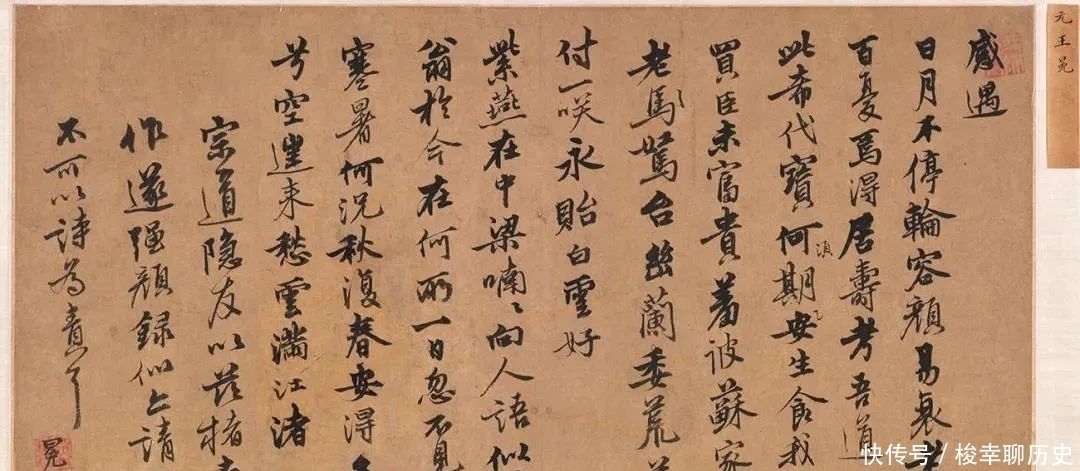 元王冕
感遇
日月不停輪容顔易衰
百憂焉得居壽考吾道
此希代寶何須期安生食我
買臣未富貴蘇家
老馬駑台幽蘭委荒
付一咲永貽白雲好
紫燕在中梁喃ゝ向人語似
翁於今在何所一日忽不見
寒暑何況秋復春安得
兮空來愁雲滿江渚
宗道隐友以兹楮
作遂强顔録似上請
不可以詩為責
冕
快传号/梭幸聊历史